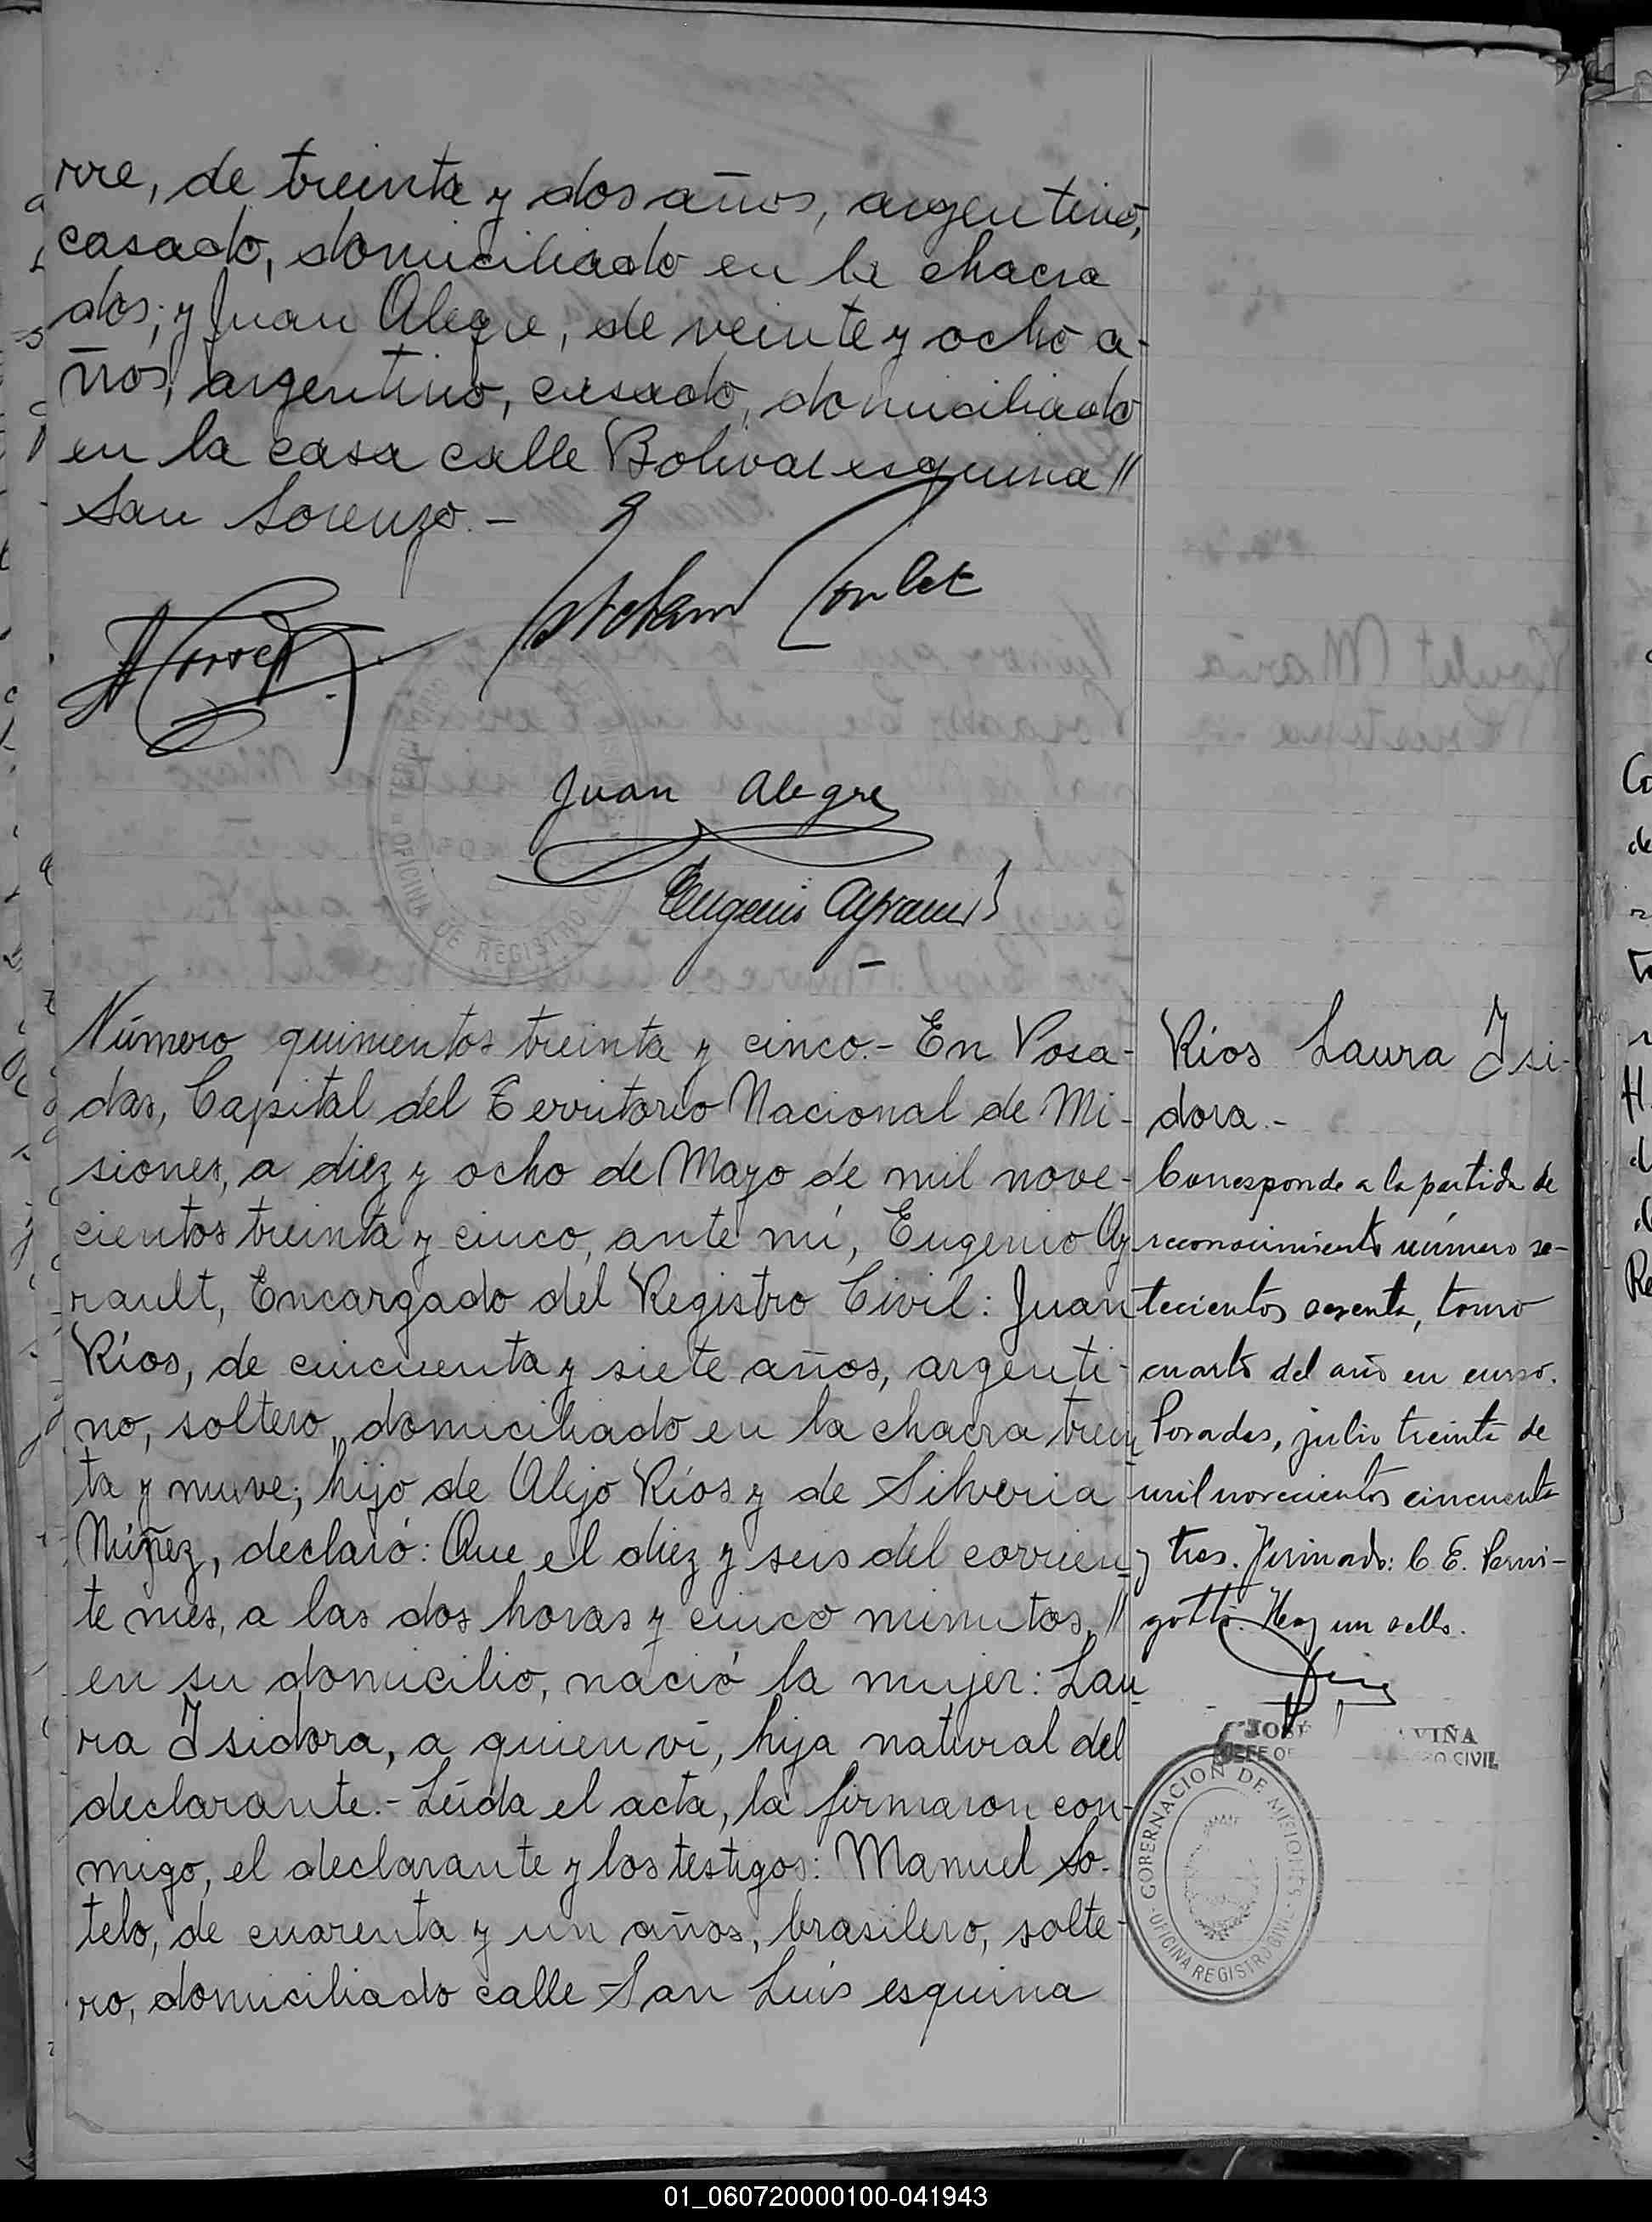 rre, de treinta y dos años, argentino,
casado, domiciliado en la chacra
dos; y Juan Alegre, de veinte y ocho a-
ños, argentino, casado, domiciliado
en la casa calle Bolivar esquina //
San Lorenzo.-
Juan Alegre
Eugenio Ayrault
Número quinientos treinta y cinco.- En Posa-
das, Capital del Territorio Nacional de Mi-
siones, a diez y ocho de Mayo de mil nove-
cientos treinta y cinco, ante mí, Eugenio Ay
rault, Encargado del Registro Civil: Juan
Ríos, de cincuenta y siete años, argenti-
no, soltero, domiciliado en la chacra trein
ta y nueve; hijo de Alejo Ríos y de Silveria
Núñez, declaró: Que el diez y seis del corrien
te mes, a las dos horas y cinco minutos, //
en su domicilio, nació la mujer: Lau
ra Isidora, a quien ví, hija natural del
declarante.- Leída el acta, la firmaron con-
migo, el declarante y los testigos: Manuel So-
telo, de cuarenta y un años, brasilero, solte-
ro, domiciliado calle San Luis esquina
Ríos Laura Isi-
dora.-
Corresponde a la partida de
reconocimiento número se-
tecientos sesenta, tomo
cuarto del año en curso.
Posadas, julio treinta de
mil novecientos cincuenta
y tres. Firmado: C. E. Perni-
gotti. Hay un sello.
JOSÉ VIÑA
JEFE OF CIVIL
GOBERNACION DE MISIONES
OFICINA REGISTRO CIVIL
OFICINA DE REGISTRO
01_060720000100-041943